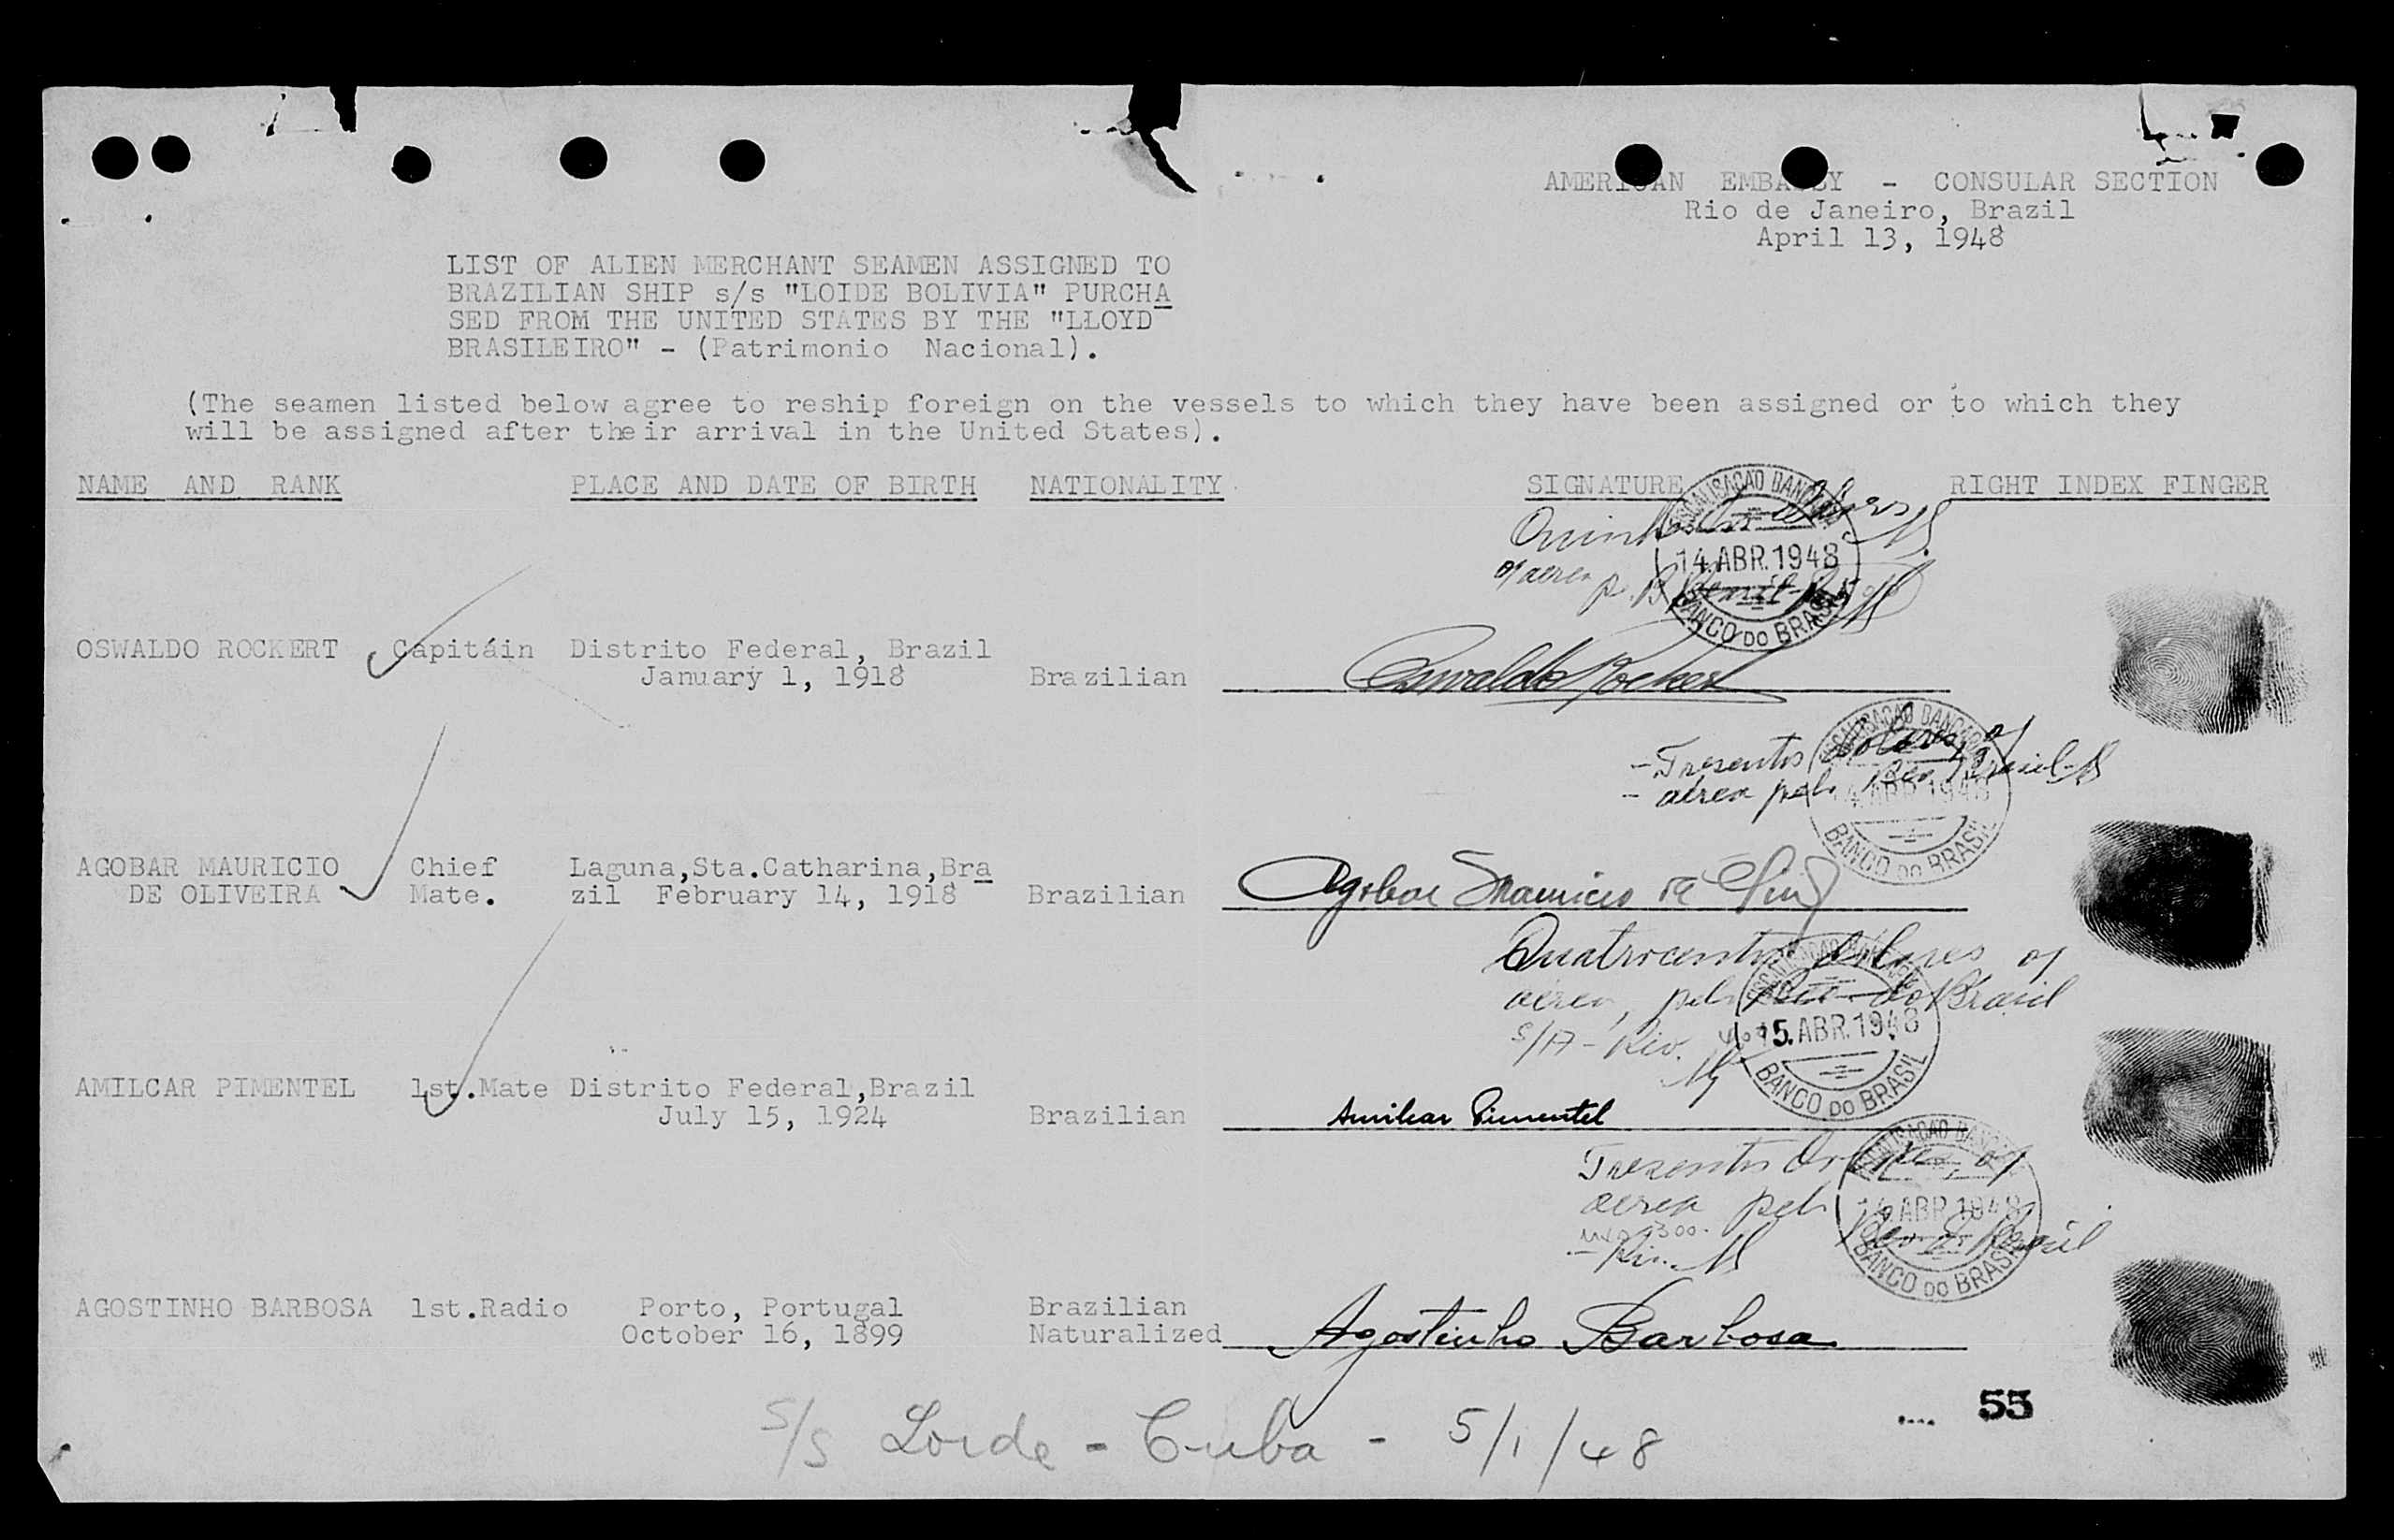 AMERICAN EMBASSY - CONSULAR SECTION
Rio de Janeiro, Brazil
April 13, 1948
LIST OF ALIEN MERCHANT SEAMEN ASSIGNED TO
BRAZILIAN SHIP s/s "LOIDE BOLIVIA" PURCHA
SED FROM THE UNITED STATES BY THE "LLOYD
BRASILEIRO" - (Patrimonio Nacional).
(The seamen listed below agree to reship foreign on the vessels to which they have been assigned or to which they
will be assigned after their arrival in the United States).
NAME AND RANK PLACE AND DATE OF BIRTH NATIONALITY SIGNATURE RIGHT INDEX FINGER
FISCALISAÇÃO BANCARIA
14.ABR.1948
BANCO DO BRASIL
OSWALDO ROCKERT Capitáin Distrito Federal, Brazil
January 1, 1918 Brazilian Oswaldo Rockert
FISCALISAÇÃO BANCARIA
- Tresentos dolares, of
- aérea pelo Bco. Brasil
14.ABR.1948
BANCO DO BRASIL
AGOBAR MAURICIO Chief Laguna,Sta.Catharina,Bra
DE OLIVEIRA Mate. zil February 14, 1918 Brazilian Agobar Mauricio de
FISCALISAÇÃO BANCARIA
Quatrocentos dolares of
aérea, pelo Bco do Brasil
S/A - Rio.
15.ABR.1948
BANCO DO BRASIL
AMILCAR PIMENTEL 1st.Mate Distrito Federal,Brazil
July 15, 1924 Brazilian Amilcar Pimentel
FISCALISAÇÃO BANCARIA
Tresentos Dolares, of
aerea pelo Bco. do Brasil
14.ABR.1948
300.-
- Rio.
BANCO DO BRASIL
AGOSTINHO BARBOSA 1st.Radio Porto, Portugal Brazilian
October 16, 1899 Naturalized Agostinho Barbosa
.... 55
S/S Loide - Cuba - 5/1/48